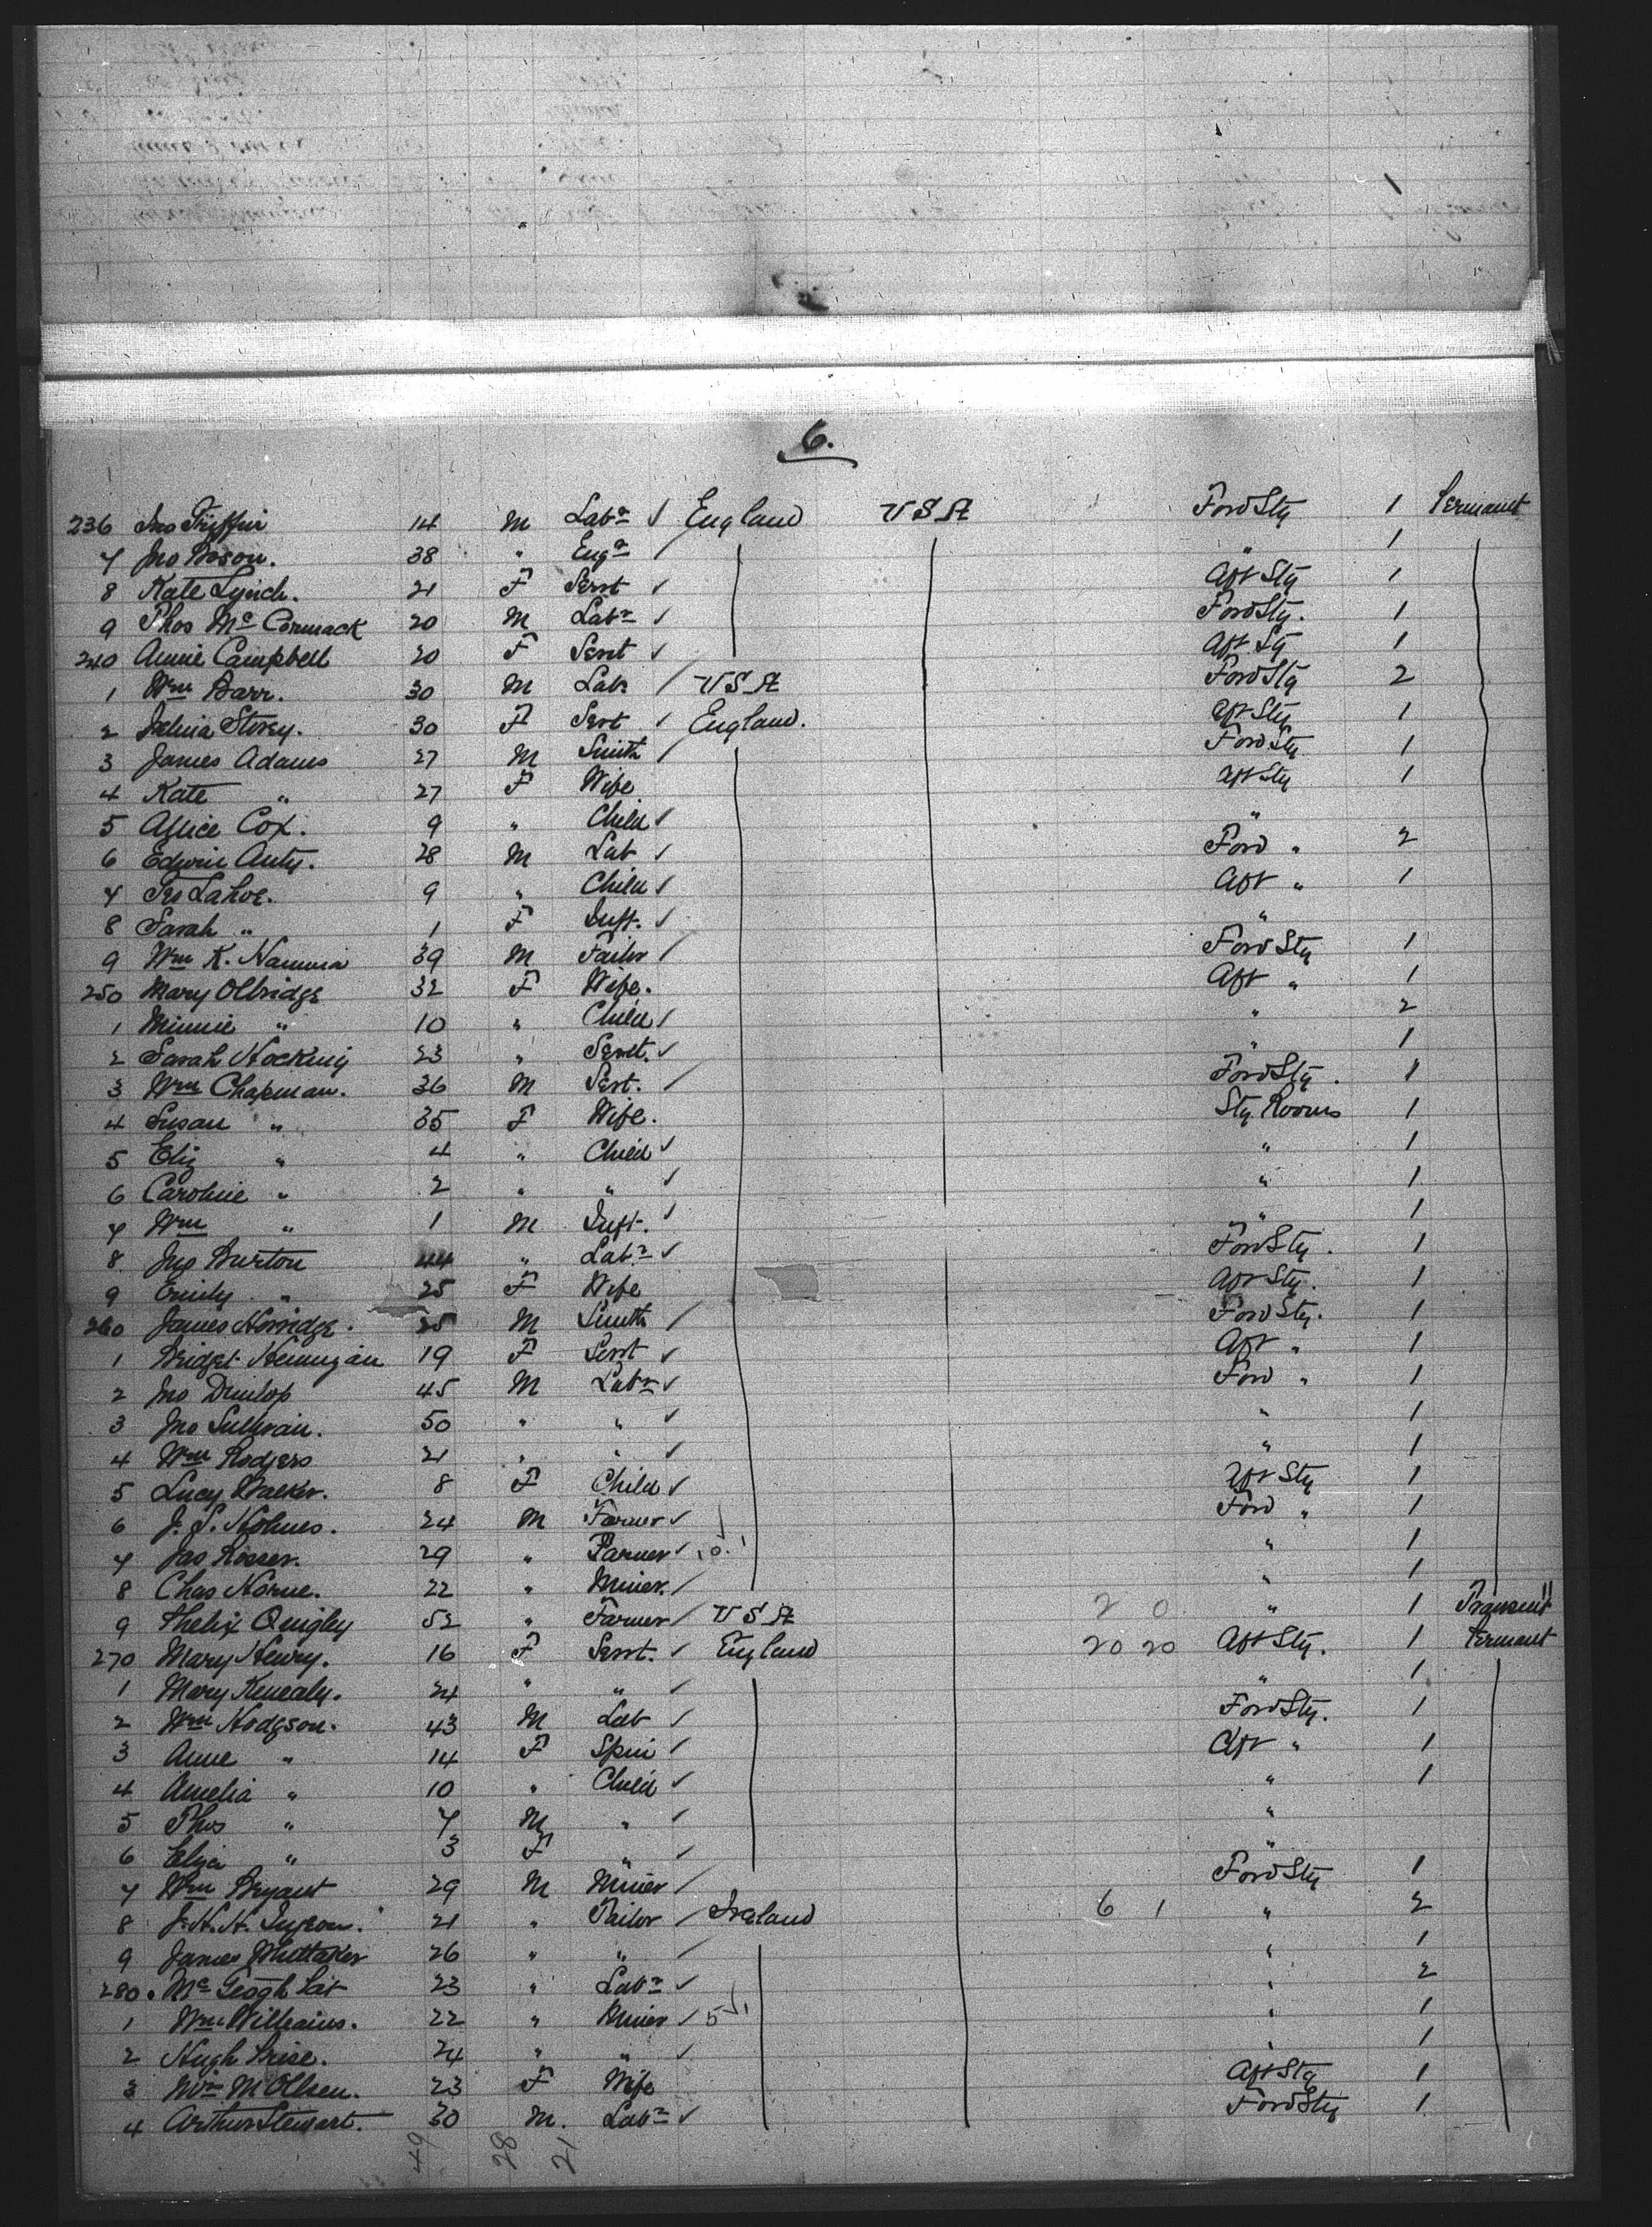 6.
236 Jno Griffin 14 M Labr England USA Ford Stg 1 Permanent
7 Jno 38 " Engr " 1
8 Kate Lynch. 21 F Servt Aft Stg 1
9 Thos Mc Cormack 20 M Labr Ford Stg. 1
240 Annie Campbell 20 F Servt Aft Stg 1
1 Wm Barr. 30 M Labr USA Ford Stg 2
2 Storey. 30 F Servt England. Aft Stg 1
3 James Adams 27 M Smith Ford Stg 1
4 Kate " 27 F Wife Aft Stg 1
5 Allice Cox. 9 " Child "
6 Edwin Auty. 28 M Lab Ford " 2
7 Lahoe. 9 " Child Aft " 1
8 Sarah " 1 F Inft. "
9 Wm K. 39 M Tailor Ford Stg 1
250 Mary Olbridge 32 F Wife. Aft " 1
1 Minnie " 10 " Child " 2
2 Sarah Hocking 23 " Servt. " 1
3 Wm Chapman. 36 M Servt. Ford Stg. 1
4 Susan " 35 F Wife. Stg Rooms 1
5 Eliz " 4 " Child " 1
6 Caroline " 2 " " " 1
7 Wm " 1 M Inft. " 1
8 Jno Burton 44 " Labr Ford Stg. 1
9 Emily " 25 F Wife Aft Stg. 1
260 James Horridge. 25 M Smith Ford Stg. 1
1 Bridget Hennigan 19 F Servt Aft " 1
2 Jno Dunlop 45 M Labr Ford " 1
3 Jno Sullivan. 50 " " " 1
4 Wm Rodgers 21 " " " 1
5 Lucy Walker. 8 F Child Aft Stg 1
6 J. S. Holmes. 24 M Farmer Ford " 1
7 Jas Rosser. 29 " Farmer " 1
8 Chas Horne. 22 " Miner. " 1
9 Quigley 52 " Farmer USA 2 0 " 1 Transit
270 Mary Henry. 16 F Servt. England 20 20 Aft Stg. 1 Permant
1 Mary Kenealy. 24 " " " 1
2 Wm Hodgson. 43 M Lab Ford Stg. 1
3 Anne " 14 F Spin Aft " 1
4 Amelia " 10 " Child " 1
5 Thos " 7 M " "
6 Eliza " 3 F " "
7 Wm Bryant 29 M Miner Ford Stg 1
8 J. H. H. 21 " Tailor Ireland 6 1 " 2
9 James Whittaker 26 " " " 1
280 Mc Geogh Pat 23 " Labr " 2
1 Wm Williams. 22 " Miner 5 " 1
2 Hugh 24 " " " 1
3 M Olsen. 23 F Wife Aft Stg 1
4 Arthur Stewart. 30 M. Labr Ford Stg 1
49 28 21